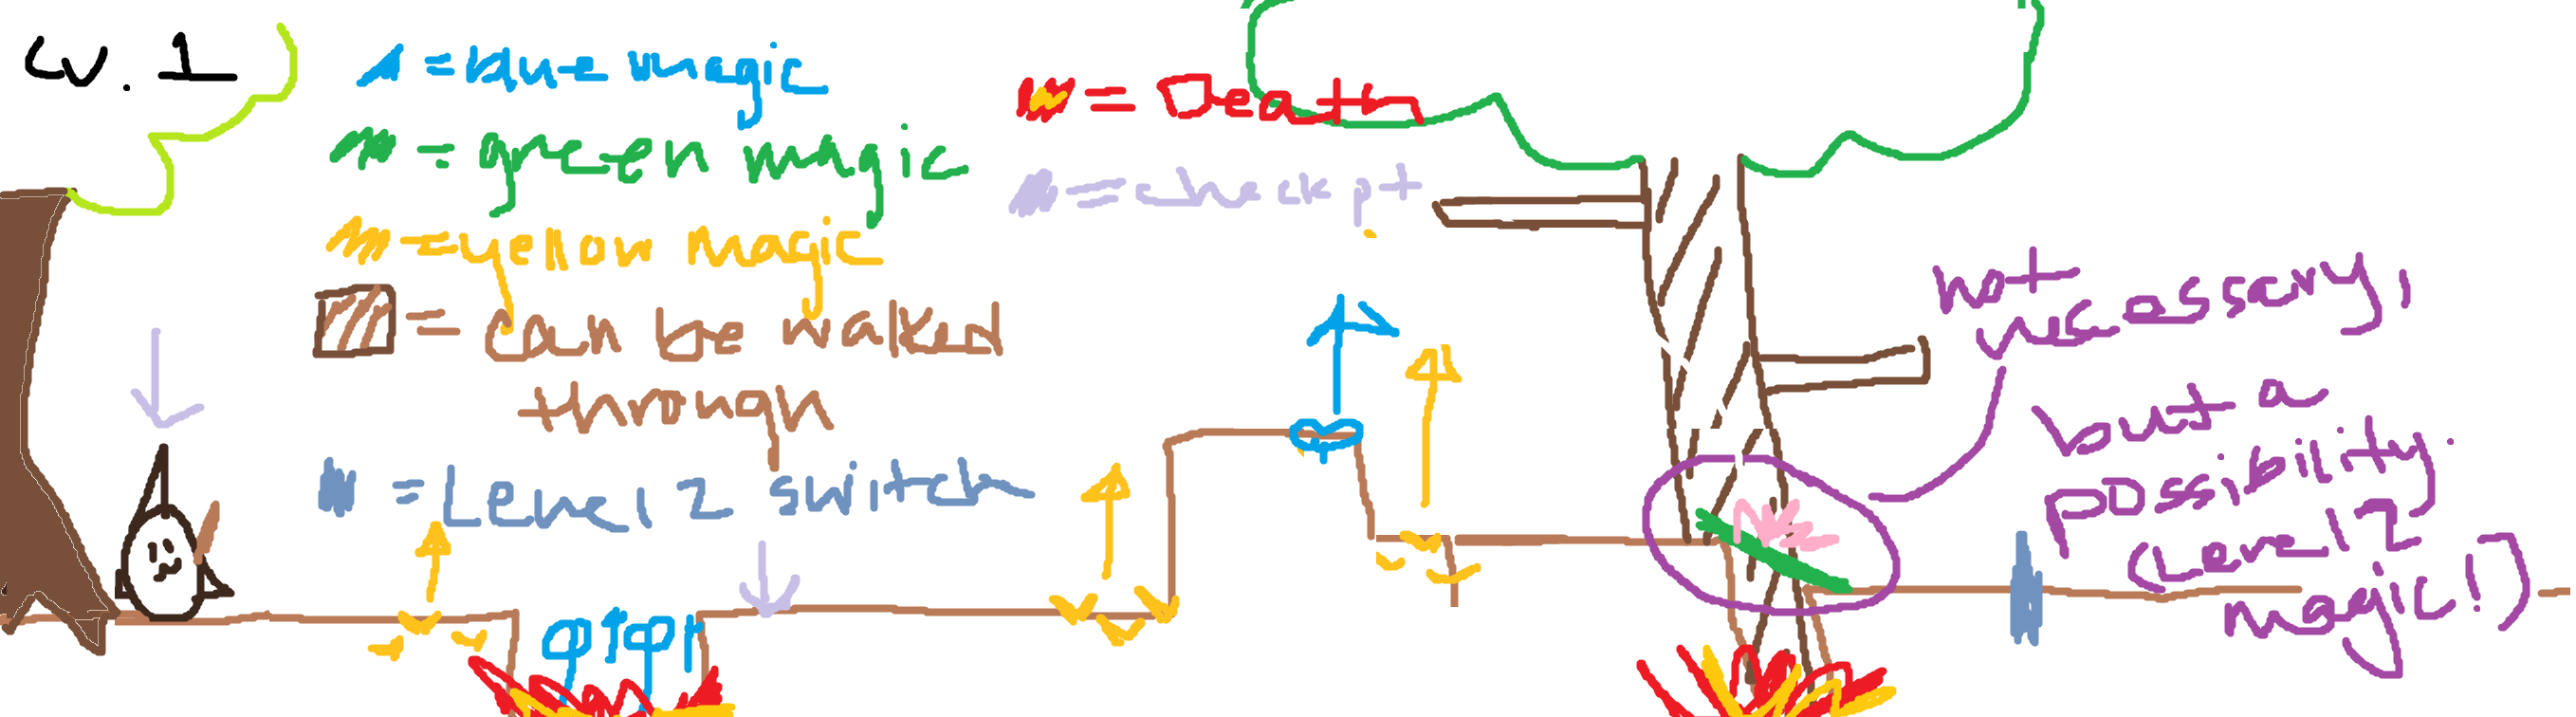 Lv. 1
= blue magic
= green magic
= yellow magic
= can be walked
through
= Level 2 switch
= Death
= check pt
not
necessary,
but a
possibility.
(Level 2
magic!)